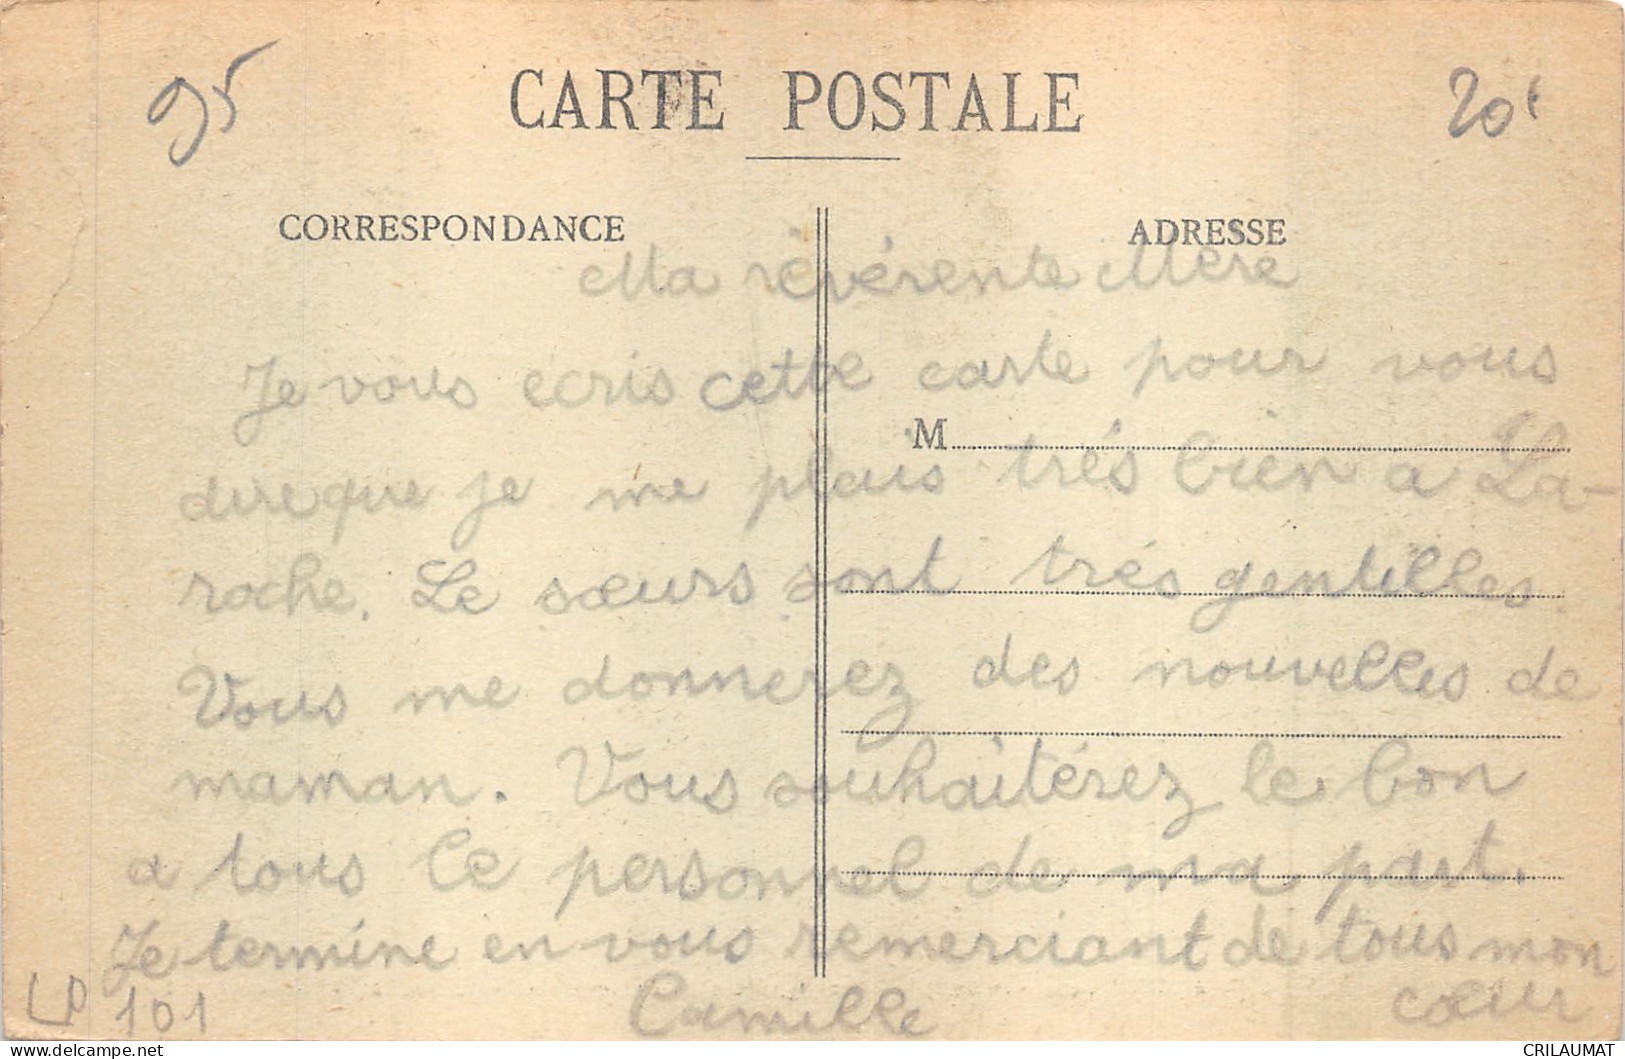 95
CARTE POSTALE
20f
CORRESPONDANCE
ADRESSE
Ma révérente Mère
Je vous ecris cette carte pour vous
M
dire que je me plais trés bien a La-
roche. Le sœurs sont trés gentilles
Vous me donnerez des nouvelles de
maman. Vous souhaitérez le bon
a tous le personnel de ma part.
Je termine en vous remerciant de tous mon
cœur
Camille
LP 101
CRILAUMAT